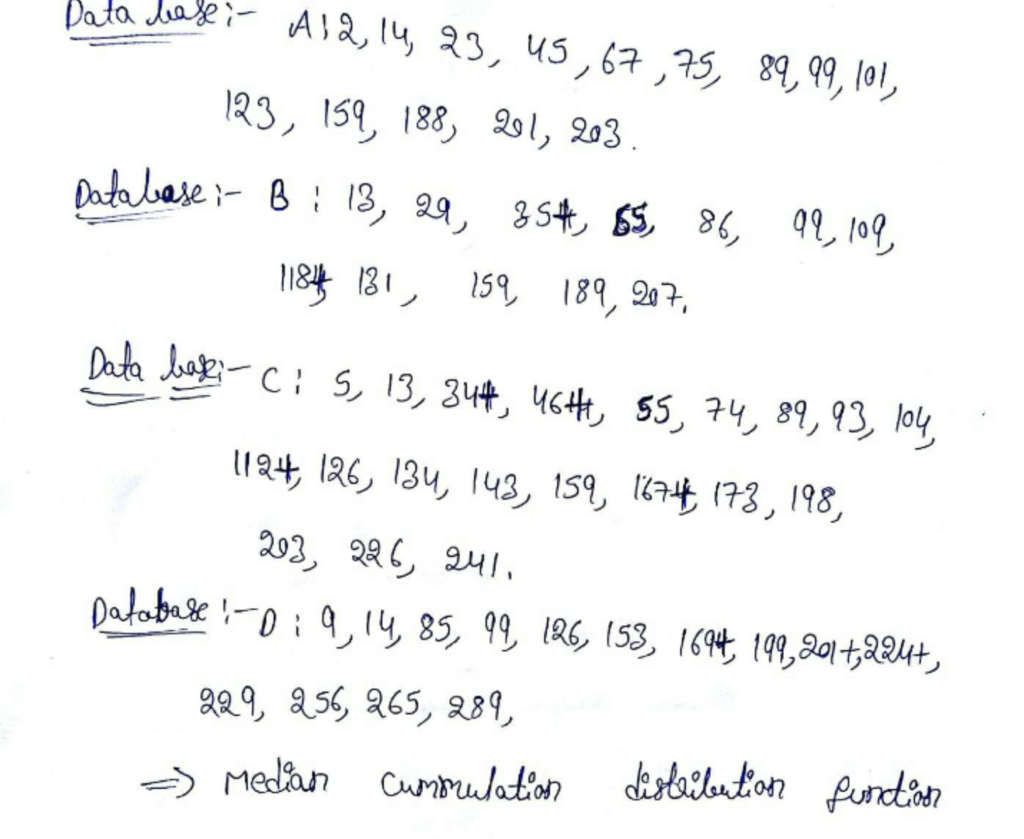 Data base :- A : 2, 14, 23, 45, 67, 75, 89, 99, 101,
123, 159, 188, 201, 203.
Database :- B : 13, 29, 35+, 65, 86, 99, 109,
118+, 131, 159, 189, 207,
Data base :- C : 5, 13, 34+, 46+, 55, 74, 89, 93, 104,
112+, 126, 134, 143, 159, 167+, 173, 198,
203, 226, 241.
Database :- D : 9, 14, 85, 99, 126, 153, 169+, 199, 201+, 224+,
229, 256, 265, 289,
⇒ Median cummulation distribution function